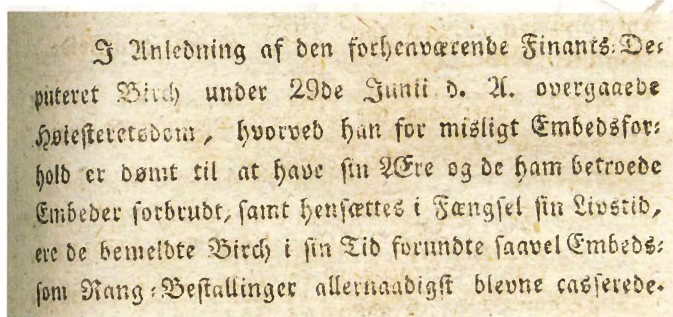 I Anledning af den forhenværende Finants-De-
puteret Birch under 29de Junii d. A. overgaaede
Høiesteretsdom, hvorved han for misligt Embedsfor-
hold er dømt til at have sin Ære og de ham betroede
Embeder forbrudt, samt hensættes i Fængsel sin Livstid,
ere de bemeldte Birch i sin Tid forundte saavel Embeds-
som Rang-Bestallinger allernaadigst blevne casserede.